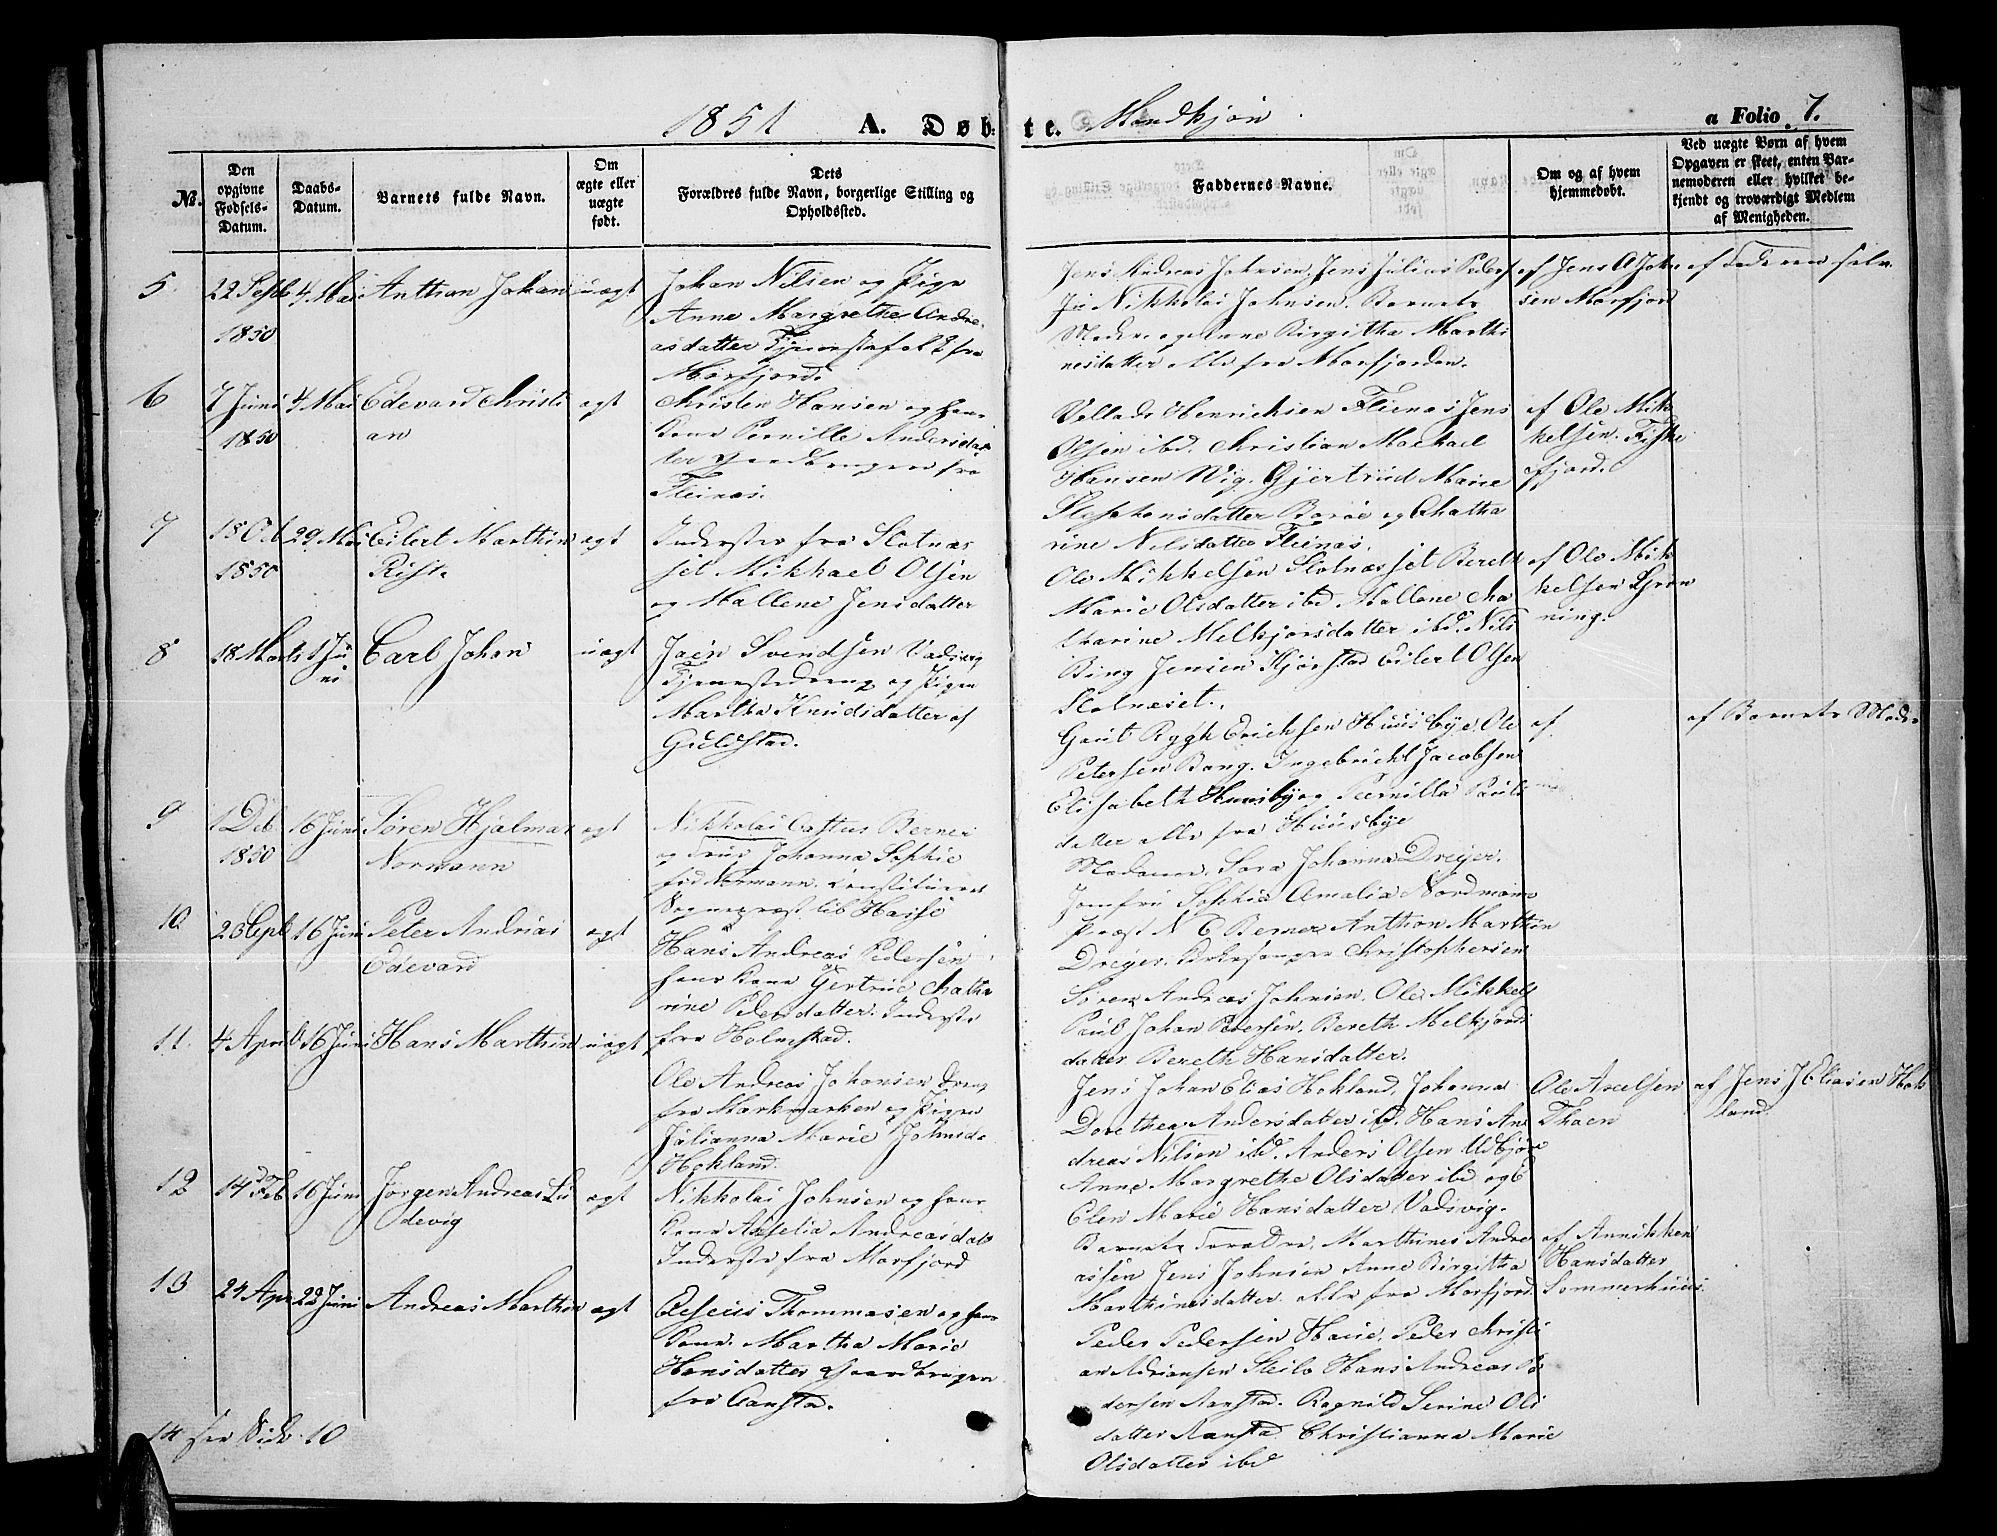 1851 A. Døbte. Mandkjøn a Folio 7.
No.
Den opgivne Fødsels-Datum.
Daabs-Datum.
Barnets fulde Navn.
Om ægte eller uægte født.
Dets Forældres fulde Navn, borgerlige Stilling og Opholdssted.
Faddernes Navne.
Om og af hvem hjemmedøbt.
Ved uægte Børn af hvem Opgaven er skeet, enten Barnemoderen eller hvilket bekjendt og troværdigt Medlem af Menigheden.
5. 22 Septb 1850 4 Mai Anthon Johan uægt
Johan Nilsen og Pige
Anne Margrethe Andre-
asdatter Tjenestefolk fra
Morfjord.
Jens Andreas Johnsen, Jens Julius Peders
Nikkolai Johnsen. Barnets
Moder og Anne Birgitha Marthi
nesdatter alle fra Morfjorden.
af Jens A Joh-
sen Morfjord
af Faderen selv.
6 7 Juni 1850 4 Mai Edevard Christi
an
ægt
Christen Hansen og hans
Kone Pernille Andersdat-
ter Gaardbruger fra
Fleinæs.
Henrichsen Fleinæs Jens
Olsen ibd. Christian Machael
Hansen Wig. Gjertrud Marie
Stephensdatter Barøe og Chatha
rine Nilsdatter Fleinæs.
af Ole Mik-
kelsen. Fiske
fjord.
7 18 Oct 1850 29 Mai Eilert Marthin
Rist.
ægt
Inderster fra Slotnæs
set Mikkael Olsen
og Mallene Jensdatter
Ole Mikkelsen Slotnæsset Bereth
Marie Olsdatter ibd Mallene Cha
tharine Melkjorsdatter ibd. Nils
Bing Jensen Kjørstad Eilert Olsen
Slotnæset.
af Ole Mik
kelsen Grøn
ning.
8 18 Marts 1 Ju
ni
Carl Johan uægt
Joen Svendsen Vadsvig
Tjenestedreng og Pigen
Martha Knudsdatter af
Guldstad.
Gerit Rygh Erichsen Huusbye, Ole
Petersen Bang. Ingebricht Jacobsen
Elisabeth Huusby og Pernilla Pauls
datter alle fra Huusbye
af
af Barnets Moder
9 1 Deb 1850 16 Juni Søren Hjalmar
Normann
ægt
Nikkolai Castus Berner
og Frue Johanna Sophie
fød Normann. Constitueret
Sognepræst til Hassel
Madame Sara Johanna Dreyer.
Jomfru Sophia Amalia Nordmann
Præst N C Berner Anthon Marthin
Dreyer. Kirkesanger Christophersen
10. 23 Spb 16 Juni Peter Andrias
Edevard
ægt
Hans Andreas Pedersen
hans Kone Gertrue Chatha
rine Pedersdatter. Inderste
fra Holmstad.
Søren Andreas Johnsen. Ole Mikkels
Paul Johan Pedersen. Bereth Melkjords
datter Bereth Hansdatter.
11. 4 April 16 Juni Hans Marthin uægt
Ole Andreas Johansen Dreng
fra Markmarken og Pigen
Julianna Marie Johnsda
Hokland.
Jens Johan Elias Hokland, Johanna
Dorethea Andersdatter ibd. Hans An
dreas Nilsen ibd. Anders Olsen Uldbjør
Anne Margrethe Olsdatter ibd og
Elen Marie Hansdatter Vadsvig.
Ole Axelsen
Thoen
af Jens J Eliasen Hok
land.
12 14 Feb 16 Juni Jørgen Andreas Lu
devig
ægt
Nikkolai Johnsen og hans
Kone Asselia Andreasdat
Inderste fra Morfjord
Barnets Forældre, Marthines Andre
assen Jens Johnsen Anne Birgitha
Marthinesdatter alle fra Morfjord
af Annikken
Hansdatter
Sommerhuus.
13 24 Apr 22 Juni Andreas Marthin ægt
Eeseus Thommasen og hans
Kone. Martha Marie
Hansdatter Gaardbruger
fra Aanstad.
Peder Pedersen Haue. Peder Christi
an Adriansen Steilo Hans Andreas Pe
dersen Aanstad. Ragnild Serine Ols
datter Aanstad Christianna Marie
Olsdatter ibd
14 see Side 10